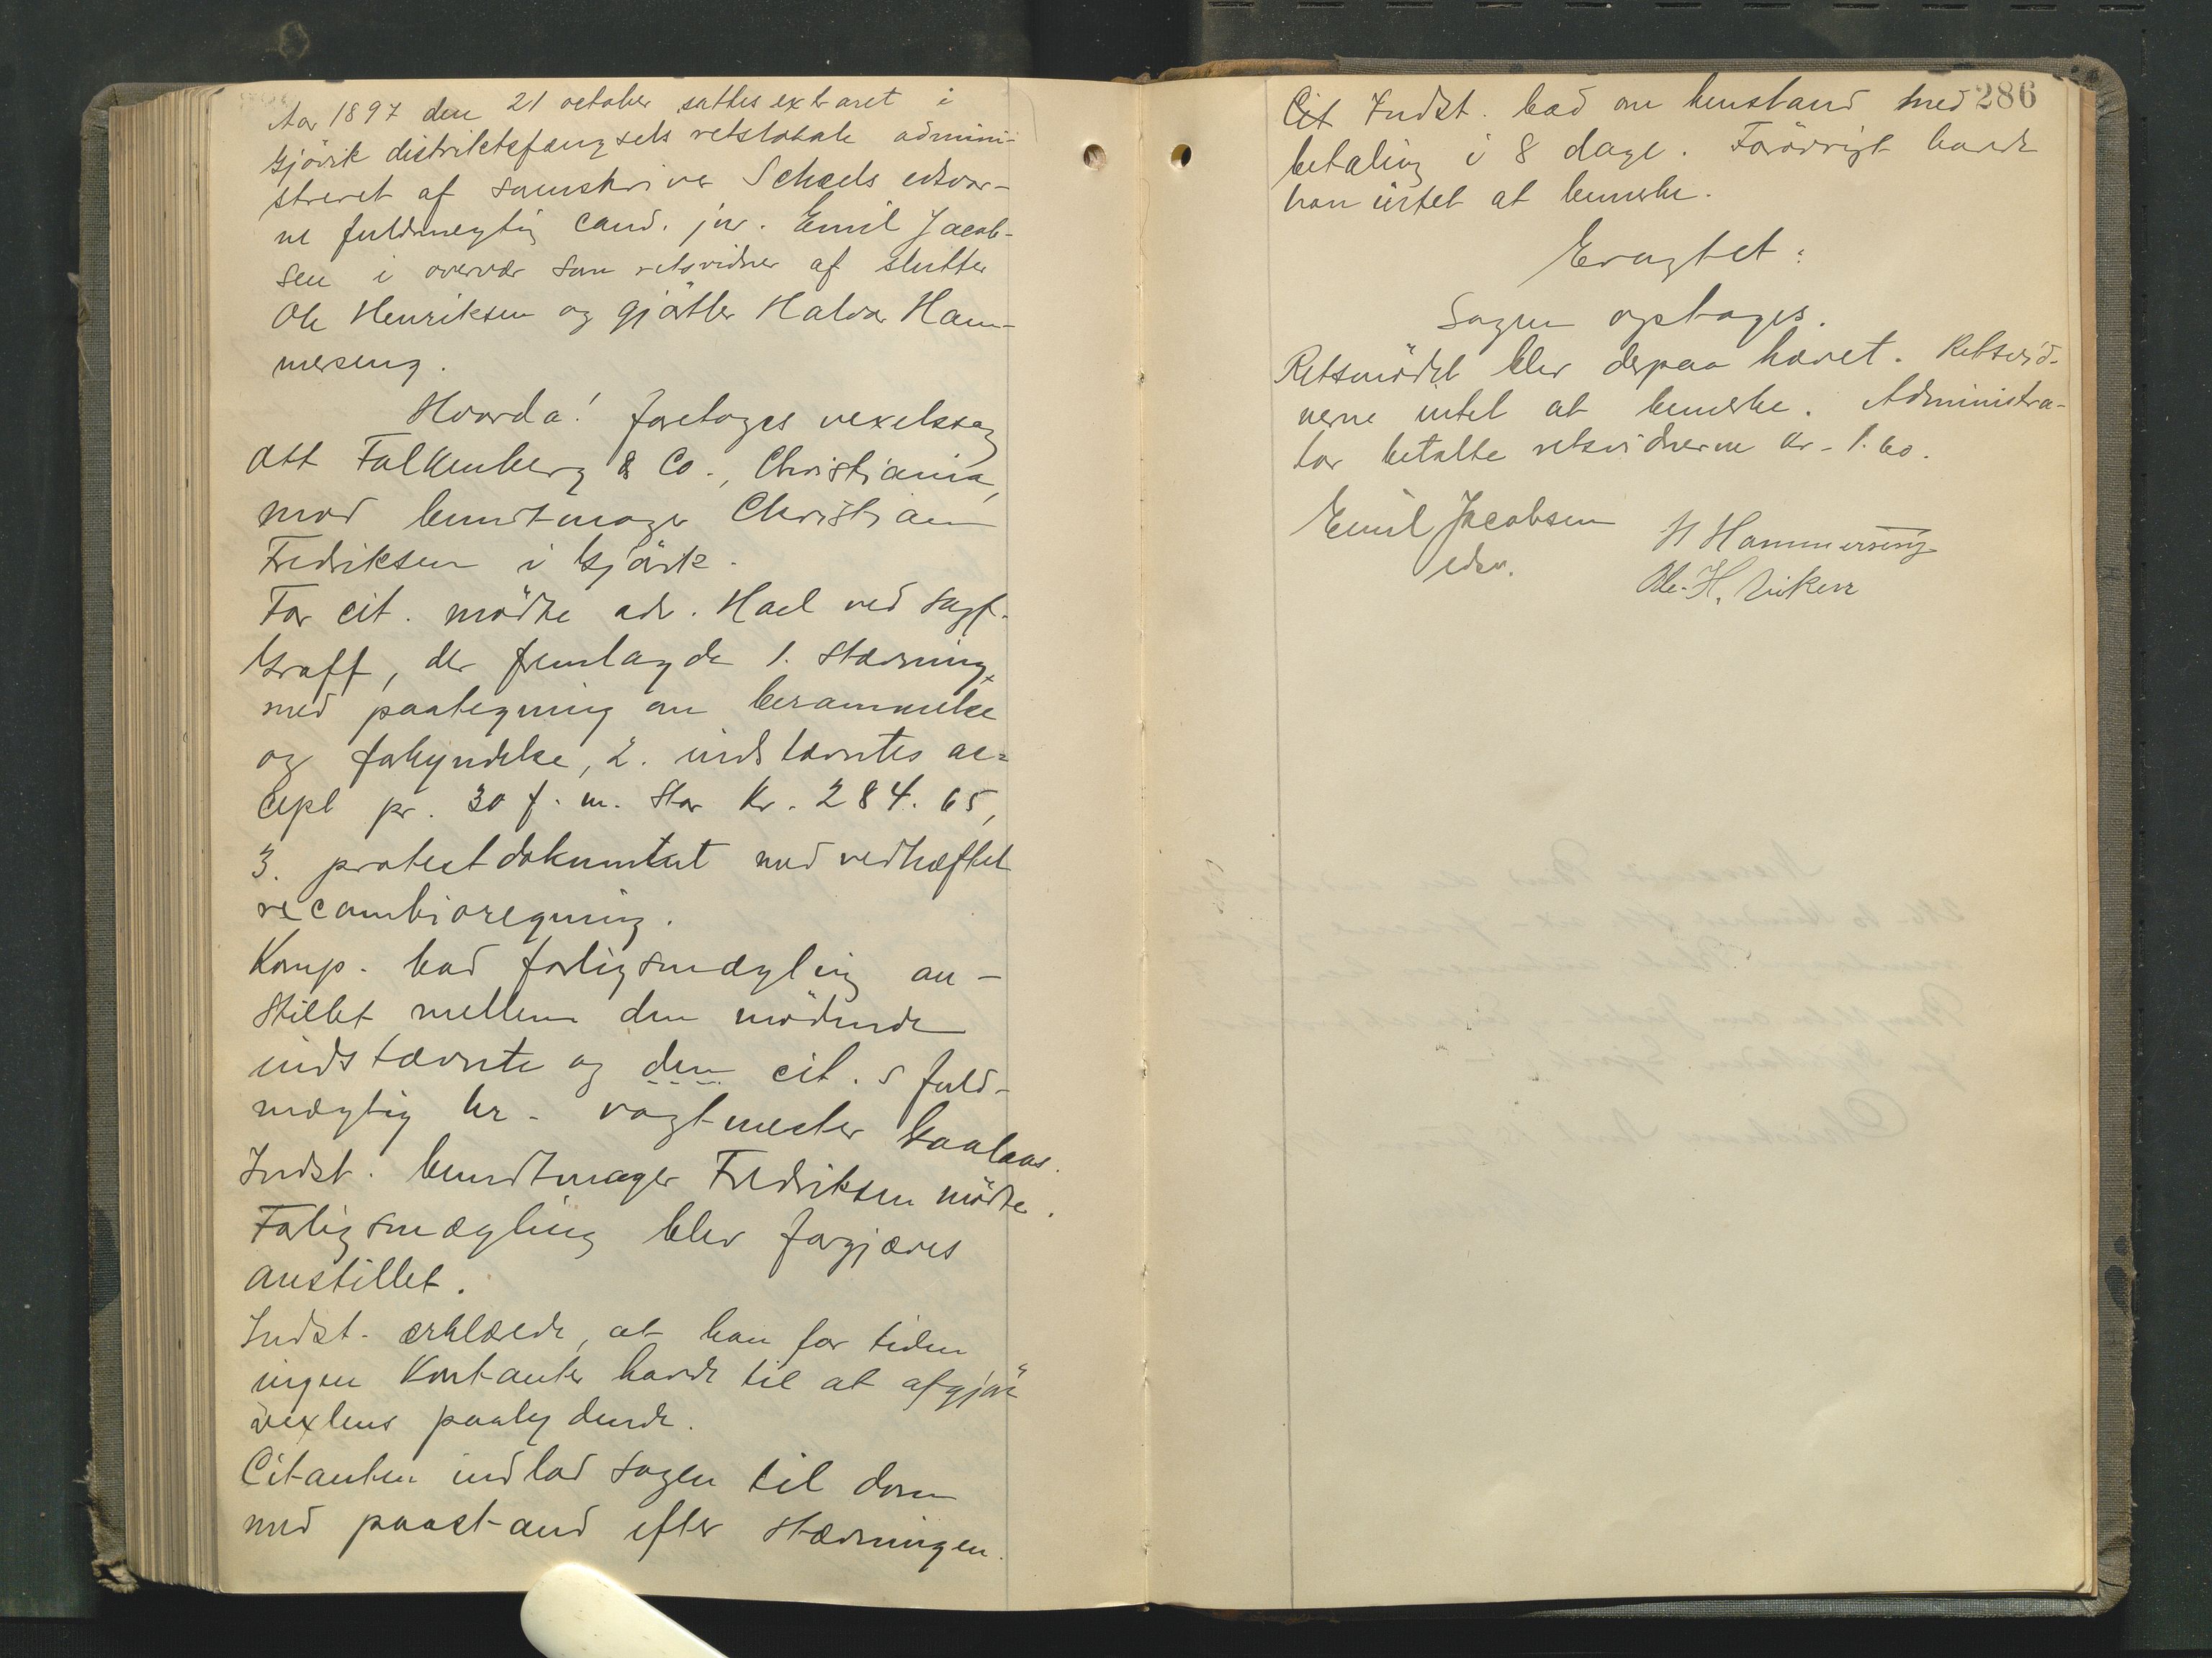 Aar 1897 den 21 october sattes extraret i
Gjövik distriktsfængsels retslokale admini-
streret af sorenskriver Scheels edsvor-
ne fuldmegtig cand. jur. Emil Jacob-
sen i overvær som retsvidner af slutter
Ole Henriksen og gjörtler Halvor Ham-
merseng.
Hvorda! foretoges vexelsag
Ott Falkenberg & Co., Christiania,
mod bundtmager Christian
Fredriksen i Gjövik.
For cit. mödte adv. Hoel ved sagf.
Graff, der fremlagde 1. Stævning
med paategning om berammelse
og forkyndelse, 2. indstævntes ac=
cept pr. 30 f. m. stor Kr. 284.65,
3. protestdokumentet med vedhæftet
recambioregning.
Komp. bad forligsmægling an-
stillet mellem den mödende
indstævnte og den cit.s fuld-
mægtig hr. vagtmester Gaalaas.
Indst. bundtmager Fredriksen mödte.
Forligsmægling blev forgjæves
anstillet.
Indst. erklærede, at han for tiden
ingen Kontanter havde til at afgjöre
vexlens paalydende.
Citanten indlod sagen til dom
med paastand efter stævningen.
286
Cit Indst. bad om henstand med
betaling i 8 dage. Forövrigt havde
han intet at bemerke.
Eragtet:
Sagen optages.
Retsmödet blev derpaa hævet. Retsvid-
nerne intet at bemerke. Administra-
tor betalte retsvidnerne Kr. 1.60.
Emil Jacobsen
edsv.
H Hammerseng
Ole H.